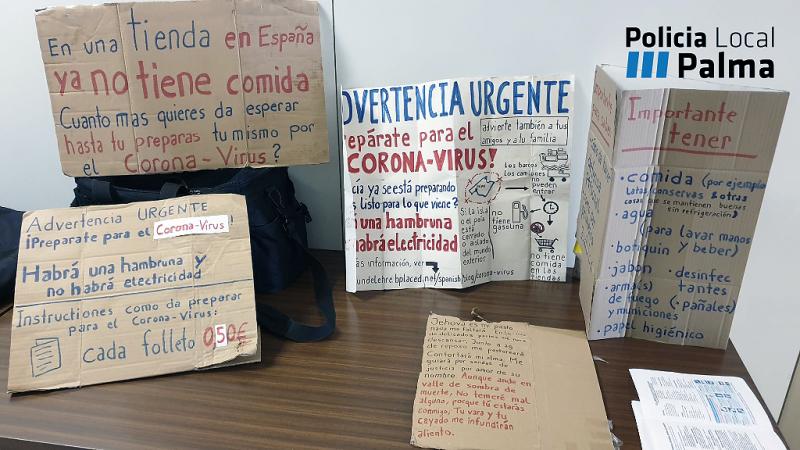 En una tienda en España
ya no tiene comida
Cuanto mas quieres da esperar
hasta tu preparas tu mismo por
el Corona-Virus?
Policia Local
Palma
DVERTENCIA URGENTE
epárate para el
CORONA-VIRUS!
cia ya se está preparando
listo para lo que viene?
una hambruna
habrá electricidad
ás información, ver
undelehre.bplaced.net/spanish/
blog/corona-virus
advierte también a tus
amigos y a tu familia
Los barcos
Los camiones
no
pueden
entrar
Si la isla
o el país
está
cerrado o
aislado del
mundo
exterior
no
tiene
gasolina
no tiene
comida
en las
tiendas
Importante
tener
· comida (por ejemplo
Latas conservas & otras
cosas que se mantienen buenas
sin refrigeración)
· agua
(para lavar manos
y beber)
· botiquin
· jabon
· desinfec
tantes
· arma(s)
de fuego
y municiones
· (pañales)
· papel higiénico
Advertencia URGENTE
¡Preparate para el Corona-Virus!
Habrá una hambruna y
no habrá electricidad
Instrucciones como da preparar
para el Corona-Virus:
cada folleto 0,50€
Jehova es mi pasto
nada me faltará. En lu
de delicados pastos me hará
descansar. Junto a ag
de reposo me pastoreará
Confortará mi alma. Me
guiará por sendas de
justicia por amor de su
nombre. Aunque ande en
valle de sombra de
muerte, No temeré mal
alguno, porque tú estarás
conmigo, Tu vara y tu
cayado me infundirán
aliento.